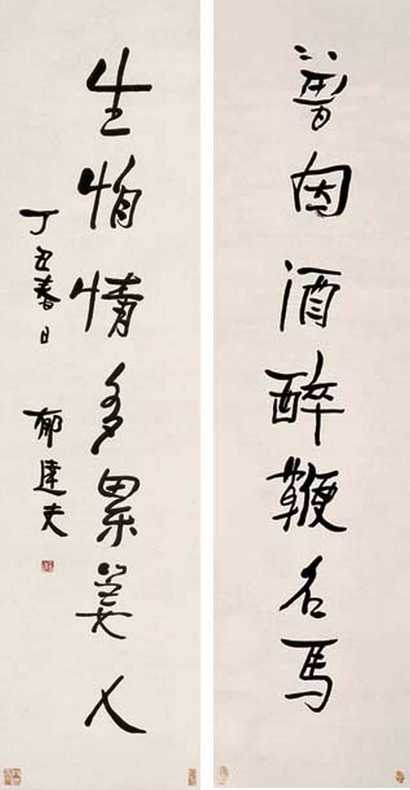 曾因酒醉鞭名馬
生怕情多累美人
丁丑春日 郁達夫